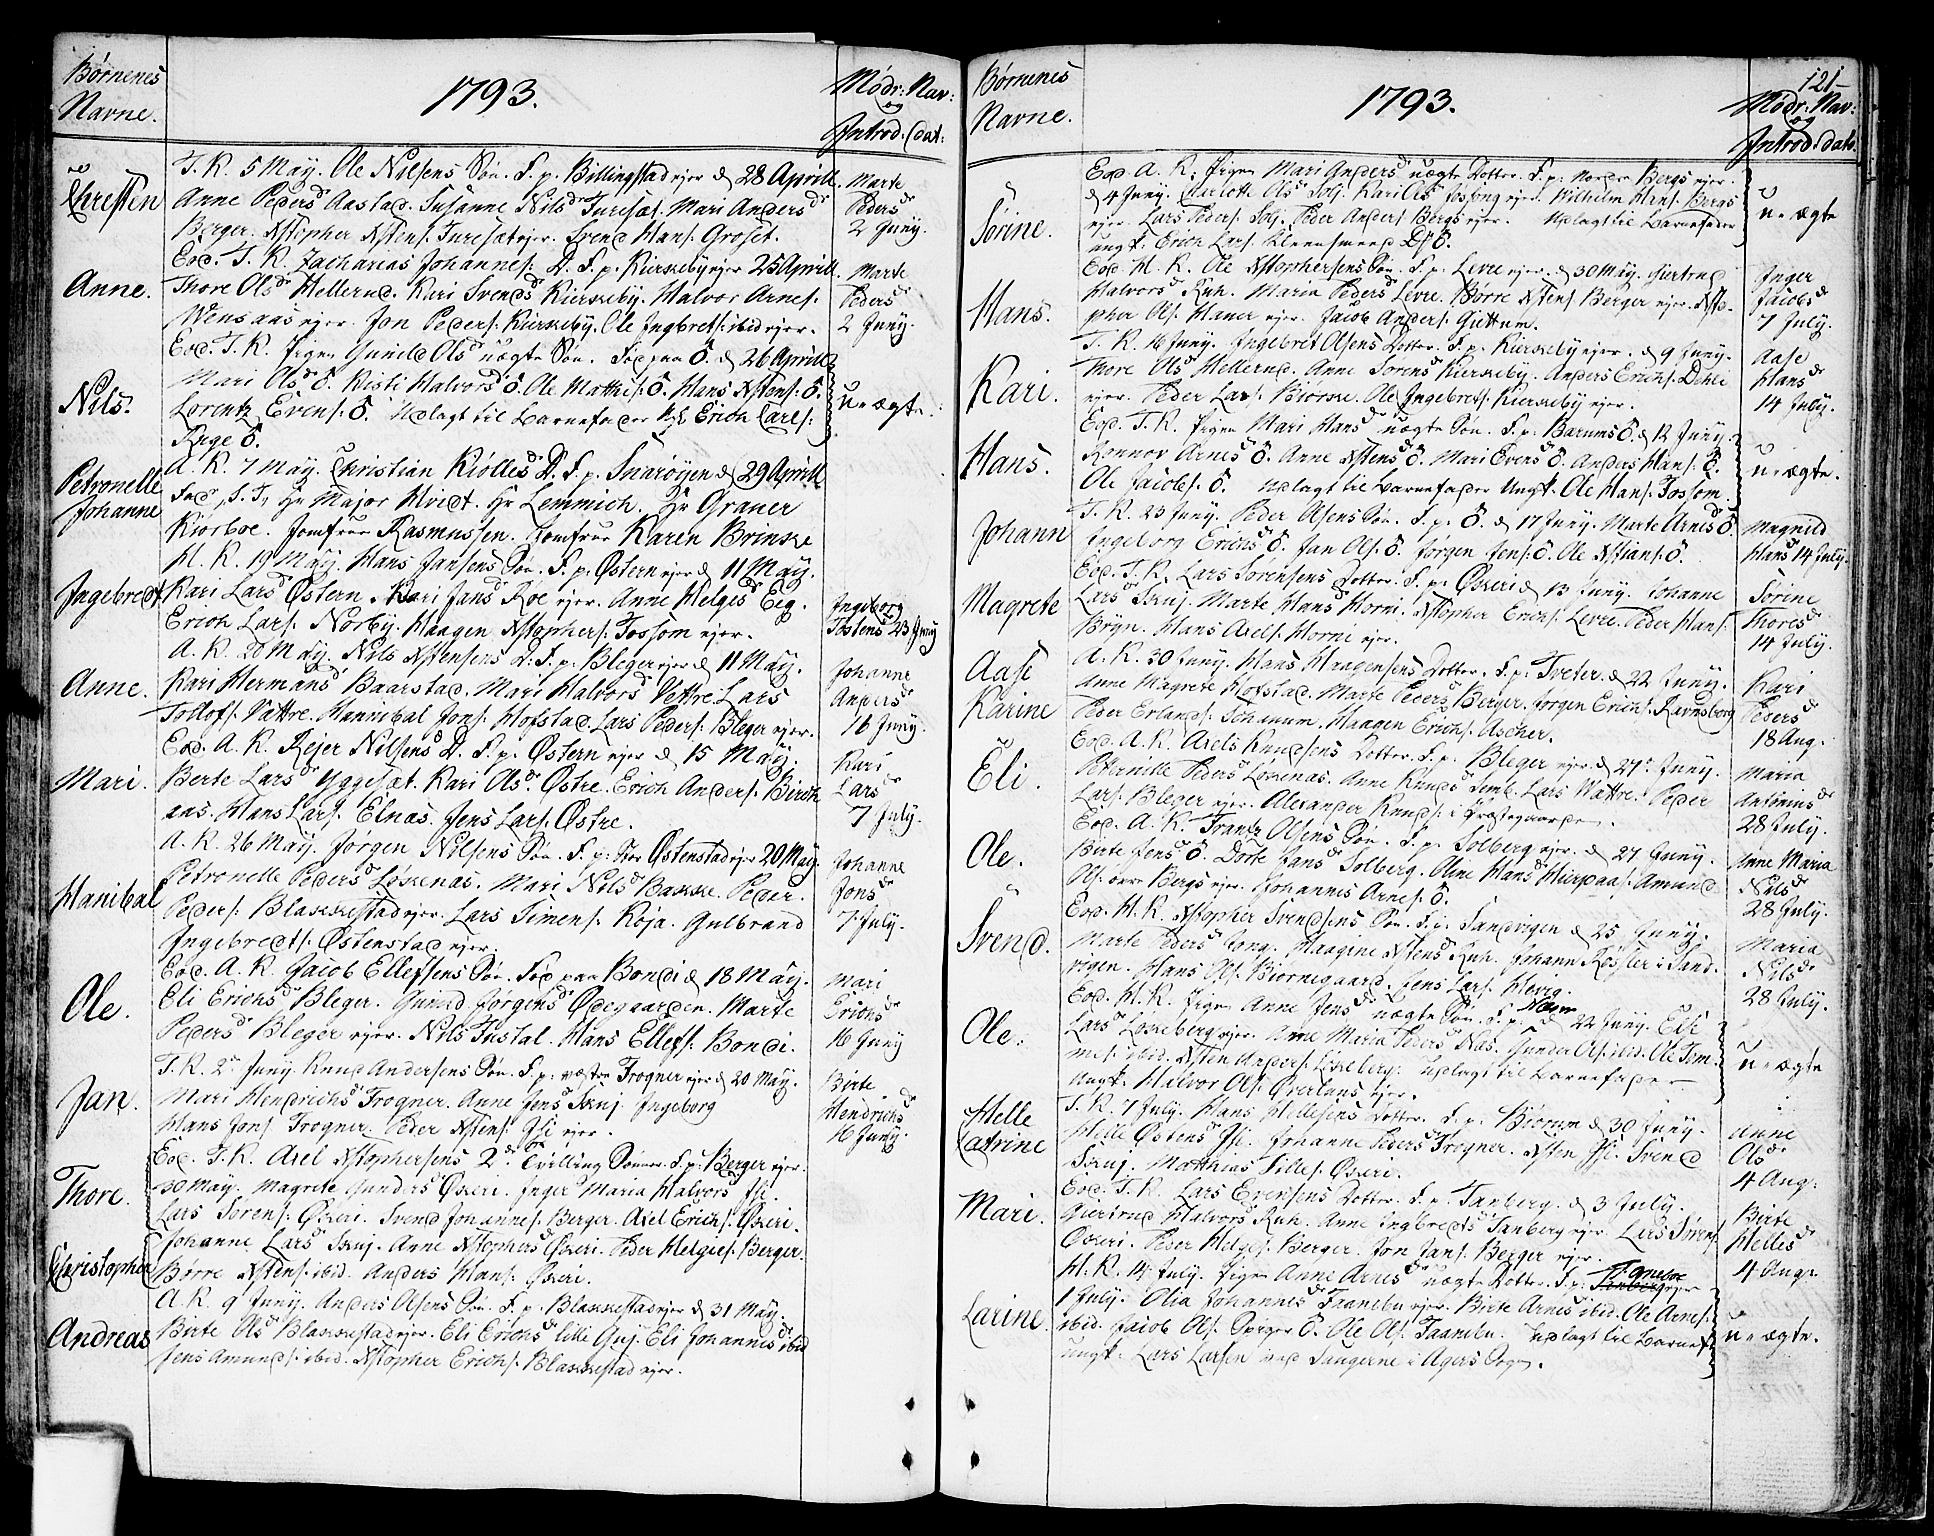 Børnenes
Navne.
1793.
Mødr: Nav:
og
Introd: dat:
Christen
T. K. 5 May. Ole Nilsens Søn. F. p. Billingstad ejer d 28 Aprill
Anne Peders Aastad. Susanne Nilsd Turesæt. Mari Andersd
Berger. Xstopher Xstens. Turesæt ejer. Svend Hans. Groset.
Marte
Pedersd
2 Juny.
Anne.
Eod. T. K. Zacharias Johannes. D. F. p. Kirkeby ejer 25 Aprill
Thore Olsd Hellerud. Kari Svends Kirkeby. Halvor Arnes.
Wensaas ejer. Jon Peders. Kirkeby. Ole Ingbrets. ibid ejer.
Marte
Pedersd
2 Juny.
Nils.
Eod. T. K. Pigen Gunild Olsd uægte Søn. Fød paa Ō. d 26 Aprill
Mari Olsd Ō. Kisti Halvord Ō. Ole Mathis. Ō. Hans Xstens. Ō.
Lorentz Evens. Ō. Udlagt til Barnefader Erich Carls:
Ryge Ō.
U-ægte.
Petronelle
Johanne
A. K. 7 May. Christian Kiølles D. F. p. Snarøyen d 29 Aprill
Fad. S. T. Hr Major Hvidt. Hr Lemmich. Hr Graner
Kiørboe. Jomfrue Rasmussen. Jomfrue Karen Brinke
Ingebredt
H. K. 19 May. Hans Jansens Søn. F. p. Østern ejer d 11 May.
Kari Larsd Østern. Kari Jansd Roe ejer. Anne Helgesd Eeg.
Erich Lars. Norby. Haagen Xstophers. Fossom ejer.
Ingeborg
Tostens 23 Juny
Anne.
A. K. 20 May. Nils Xstensens D. F. p. Bleger ejer d 11 May.
Kari Hermans Baarstad. Mari Halvors Vettre. Lars
Tollofs. Vættre. Hannibal Jons. Hofstad. Lars Peders. Bleger ejer.
Johanne
Andersd
16 Juny.
Mari.
Eod. A. K. Rejer Nilsens D. F. p. Østern ejer d 15 May.
Berte Larsd Yggesæt. Kari Olsd Østre. Erich Anders. Birch
aas. Hans Lars. Elnæs. Jens Lars. Østre.
Kari
Larsd
7 July.
Hanibal
A. K. 26 May. Jørgen Nilsens Søn. F. p. Stor Østenstad ejer 20 May.
Petronelle Peders Løkenæs. Mari Nilsd Bakke. Peder
Peders. Blakkestad ejer. Lars Simens. Roja. Gulbrand
Ingebredts. Østenstad ejer.
Johanne
Jonsd
7 July.
Ole.
Eod. A. K. Jacob Ellefsens Søn. Fød paa Bondi d 18 May.
Eli Erichsd Bleger. Gunild Jørgensd Ødegaarden. Marte
Pedersd Bleger ejer. Nils Tustal. Hans Ellefs. Bondi.
Mari
Erichsd
16 Juny
Jan.
T. K. 2 Juny. Knud Andersens Søn. F. p. væstre Frogner ejer d 20 May.
Mari Hendrichs Frogner. Anne Jens Skuj. Ingeborg
Hans Jons Frogner. Peder Xstens. Isi ejer.
Birte
Hendrichsd
16 Juny.
Thore.
Eod. T. K. Axel Xstophersens 2de Tvilling Sønner. F. p. Berger ejer.
30 May. Magrete Gunders Økeri. Inger Maria Halvors Isi.
Lars Sørens. Økeri. Svend Johannes. Berger. Axel Erichs. Økeri.
Christopher
Johanne Lars Skuj. Anne Xstophers Økeri. Peder Helges. Berger.
Børre Xstens. ibid. Anders Hans. Økeri.
Andreas
A. K. 9 Juny. Anders Olsens Søn. F. p. Blakkestad ejer d 31 May.
Birte Olsd Blakkestad ejer. Eli Erichsd lille Guj. Eli Johannesd ibid
Jens Amunds. ibid. Xstopher Erichs. Blakkestad ejer.
Børnenes
Navne.
1793.
121
Mødr: Nav:
og
Introd: dat:
Sørine.
Eod. A. K. Pigen Mari Andersd uægte Dotter. F. p. Nordre Bergs ejer.
d 4 Juny. Charlotte Olsd Kari Olsd Jospong ejer. Wilhelm Hans. Bergs
ejer. Lars Peders. Peder Anders. Bergs ejer. Udlagt til Barnefader
ungk. Erich Lars. Kleensmed Ō.
U-ægte
Hans.
Eod. H. K. Ole Xstophersens Søn. F. p. Levre ejer. d 30 May. Giertrud
Halvorsd Ruh. Maria Peders Levre. Børre Xstens Berger ejer. Xsto-
pher Ols. Haner ejer. Jacob Anders. Gjettum.
Inger
Jacobsd
7 July.
Kari.
T. K. 16 Juny. Ingebret Olsens Dotter. F. p. Kirkeby ejer. d 9 Juny.
Thore Olsd Hellerud. Anne Sørens Kirkeby. Anders Erichs. Dehli
ejer. Peder Lars. Biørke. Ole Ingebrets. Kirkeby ejer.
Aase
Hansd
14 July.
Hans.
Eod. T. K. Pigen Mari Hansd uægte Søn. F. p. Bærums Ō. d 12 Juny.
Ronnov Arnes Ō. Anne Xstens Ō. Mari Evens Ō. Anders Hans. Ō.
Ole Jacobs. Ō. Udlagt til Barnefader Ungk. Ole Hans. Fossom.
U-ægte.
Johann
T. K. 23 Juny. Peder Olsens Søn. F. p. Ō. d 17 Juny. Marte Arnes Ō.
Ingeborg Erichs Ō. Jan Ols. Ō. Jørgen Jens. Ō. Ole Xstians. Ō.
Magnild
Hansd 14 July.
Magrete
Eod. T. K. Lars Sørensens Dotter. F. p. Økeri d 13 Juny. Johanne
Larsd Skuj. Marte Hansd Horni. Xstopher Erichs. Levre. Peder Hans.
Bryn. Hans Axels. Horni ejer.
Sørine
Thoresd
14 July.
Aase
Karine
A. K. 30 Juny. Hans Haagensens Dotter. F. p. Tveter. d 22 Juny.
Anne Magrete Hofstad. Marte Pedersd Berger. Jørgen Erichs. Ravnsborg
Peder Erlands. Schaaum. Haagen Erichs. Ascher.
Kari
Pedersd
18 Aug.
Eli.
Eod. A. K. Axels Knudsens Dotter. F. p. Bleger ejer. d 27 Juny.
Petternille Peders Løkenæs. Anne Knuds Seml. Lars Wættre. Peder
Lars. Bleger ejer. Alexander Knuds. i Præstegaarden.
Maria
Antoniusd
28 July.
Ole.
Eod. A. K. Frantz Olsens Søn. F. p. Solberg ejer. d 27 Juny.
Birte Jens Ō. Dorte Jans Solberg. Oline Hans Hierpaas. Amund
Ols. Bergs ejer. Johannes Arnes. Ō.
Anne Maria
Nilsd
28 July.
Svend.
Eod. H. K. Xstopher Svendsens Søn. F. p. Sandvigen d 25 Juny.
Marte Peders Jong. Haagine Xstens Ruh. Johann Køster i Sand-
vigen. Hans Ols. Biørnegaard. Jens Lars. Høvig.
Maria
Nilsd
28 July.
Ole.
Eod. H. K. Pigen Anne Jensd uægte Søn. F. p. Stegen d 22 Juny. Edi
Larsd Løkeberg ejer. Anne Maria Peders Næs. Gunder Ols. ibid. Ole Sim-
mes. ibid. Xsten Anders. Løkeberg. Udlagt til Barnefader
Ungk. Halvor Ols. Øverlans ejer.
U-ægte
Helle
Catrine
T. K. 7 July. Hans Hellesens Dotter. F. p. Biørum d 30 Juny.
Helle Østens Isi. Johanne Peders Frogner. Xsten Isi. Svend
Skuj. Matthias Filles. Økeri.
Anne
Olsd
4 Aug.
Mari.
Eod. T. K. Lars Evensens Dotter. F. p. Tanberg. d 3 July.
Giertrud Halvors Ruh. Anne Ingbredts Tanberg ejer. Lars Sørens.
Økeri. Peder Helges. Berger. Jon Jans. Berger ejer.
Birte
Hellesd
4 Aug.
Larine.
H. K. 14 July. Pigen Anne Arnesd uægte Dotter. F. p.
1 July. Olia Johannesd Taanebu ejer. Birte Arnes ibid. Ole Arnes.
ibid. Jacob Ols. Spiger Ō. Ole Ols. Taanebu. Udlagt til Barnef
ungk. Lars Larsen ved Saugerne i Agers Sogn.
U-ægte.